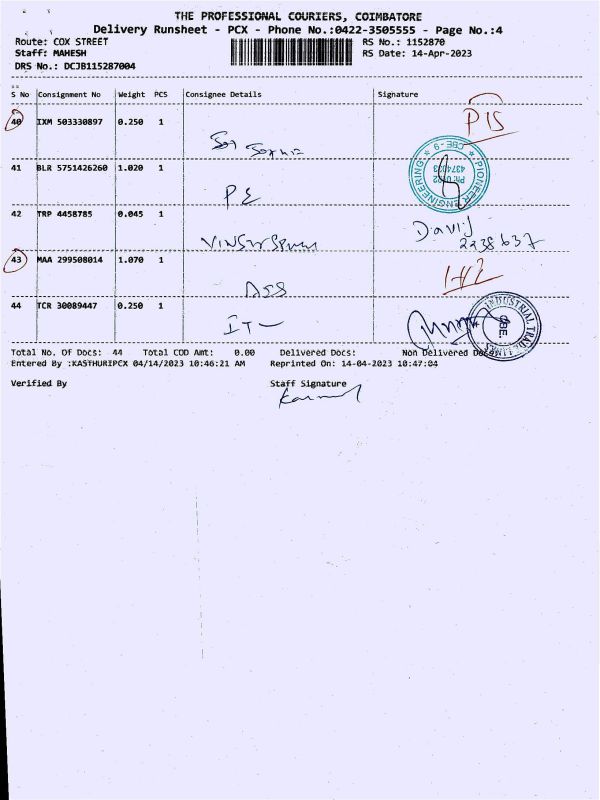 THE PROFESSIONAL COURIERS, COIMBATORE
Delivery Runsheet - PCX - Phone No.:0422-3505555 - Page No.:4
Route: COX STREET
RS No.: 1152870
Staff: MAHESH
RS Date: 14-Apr-2023
DRS No.: DCJB115287004
S No Consignment No Weight PCS Consignee Details Signature
40 IXM 503330897 0.250 1
41 BLR 5751426260 1.020 1 PE
PIONEER ENGINEERING CBE-9
42 TRP 4458785 0.045 1 David
2238637
43 MAA 299508014 1.070 1
44 TCR 30089447 0.250 1 IT
INDUSTRIAL TRADE LINKS CBE.
Total No. Of Docs: 44 Total COD Amt: 0.00 Delivered Docs: Non Delivered Docs:
Entered By :KASTHURIPCX 04/14/2023 10:46:21 AM Reprinted On: 14-04-2023 10:47:04
Verified By Staff Signature